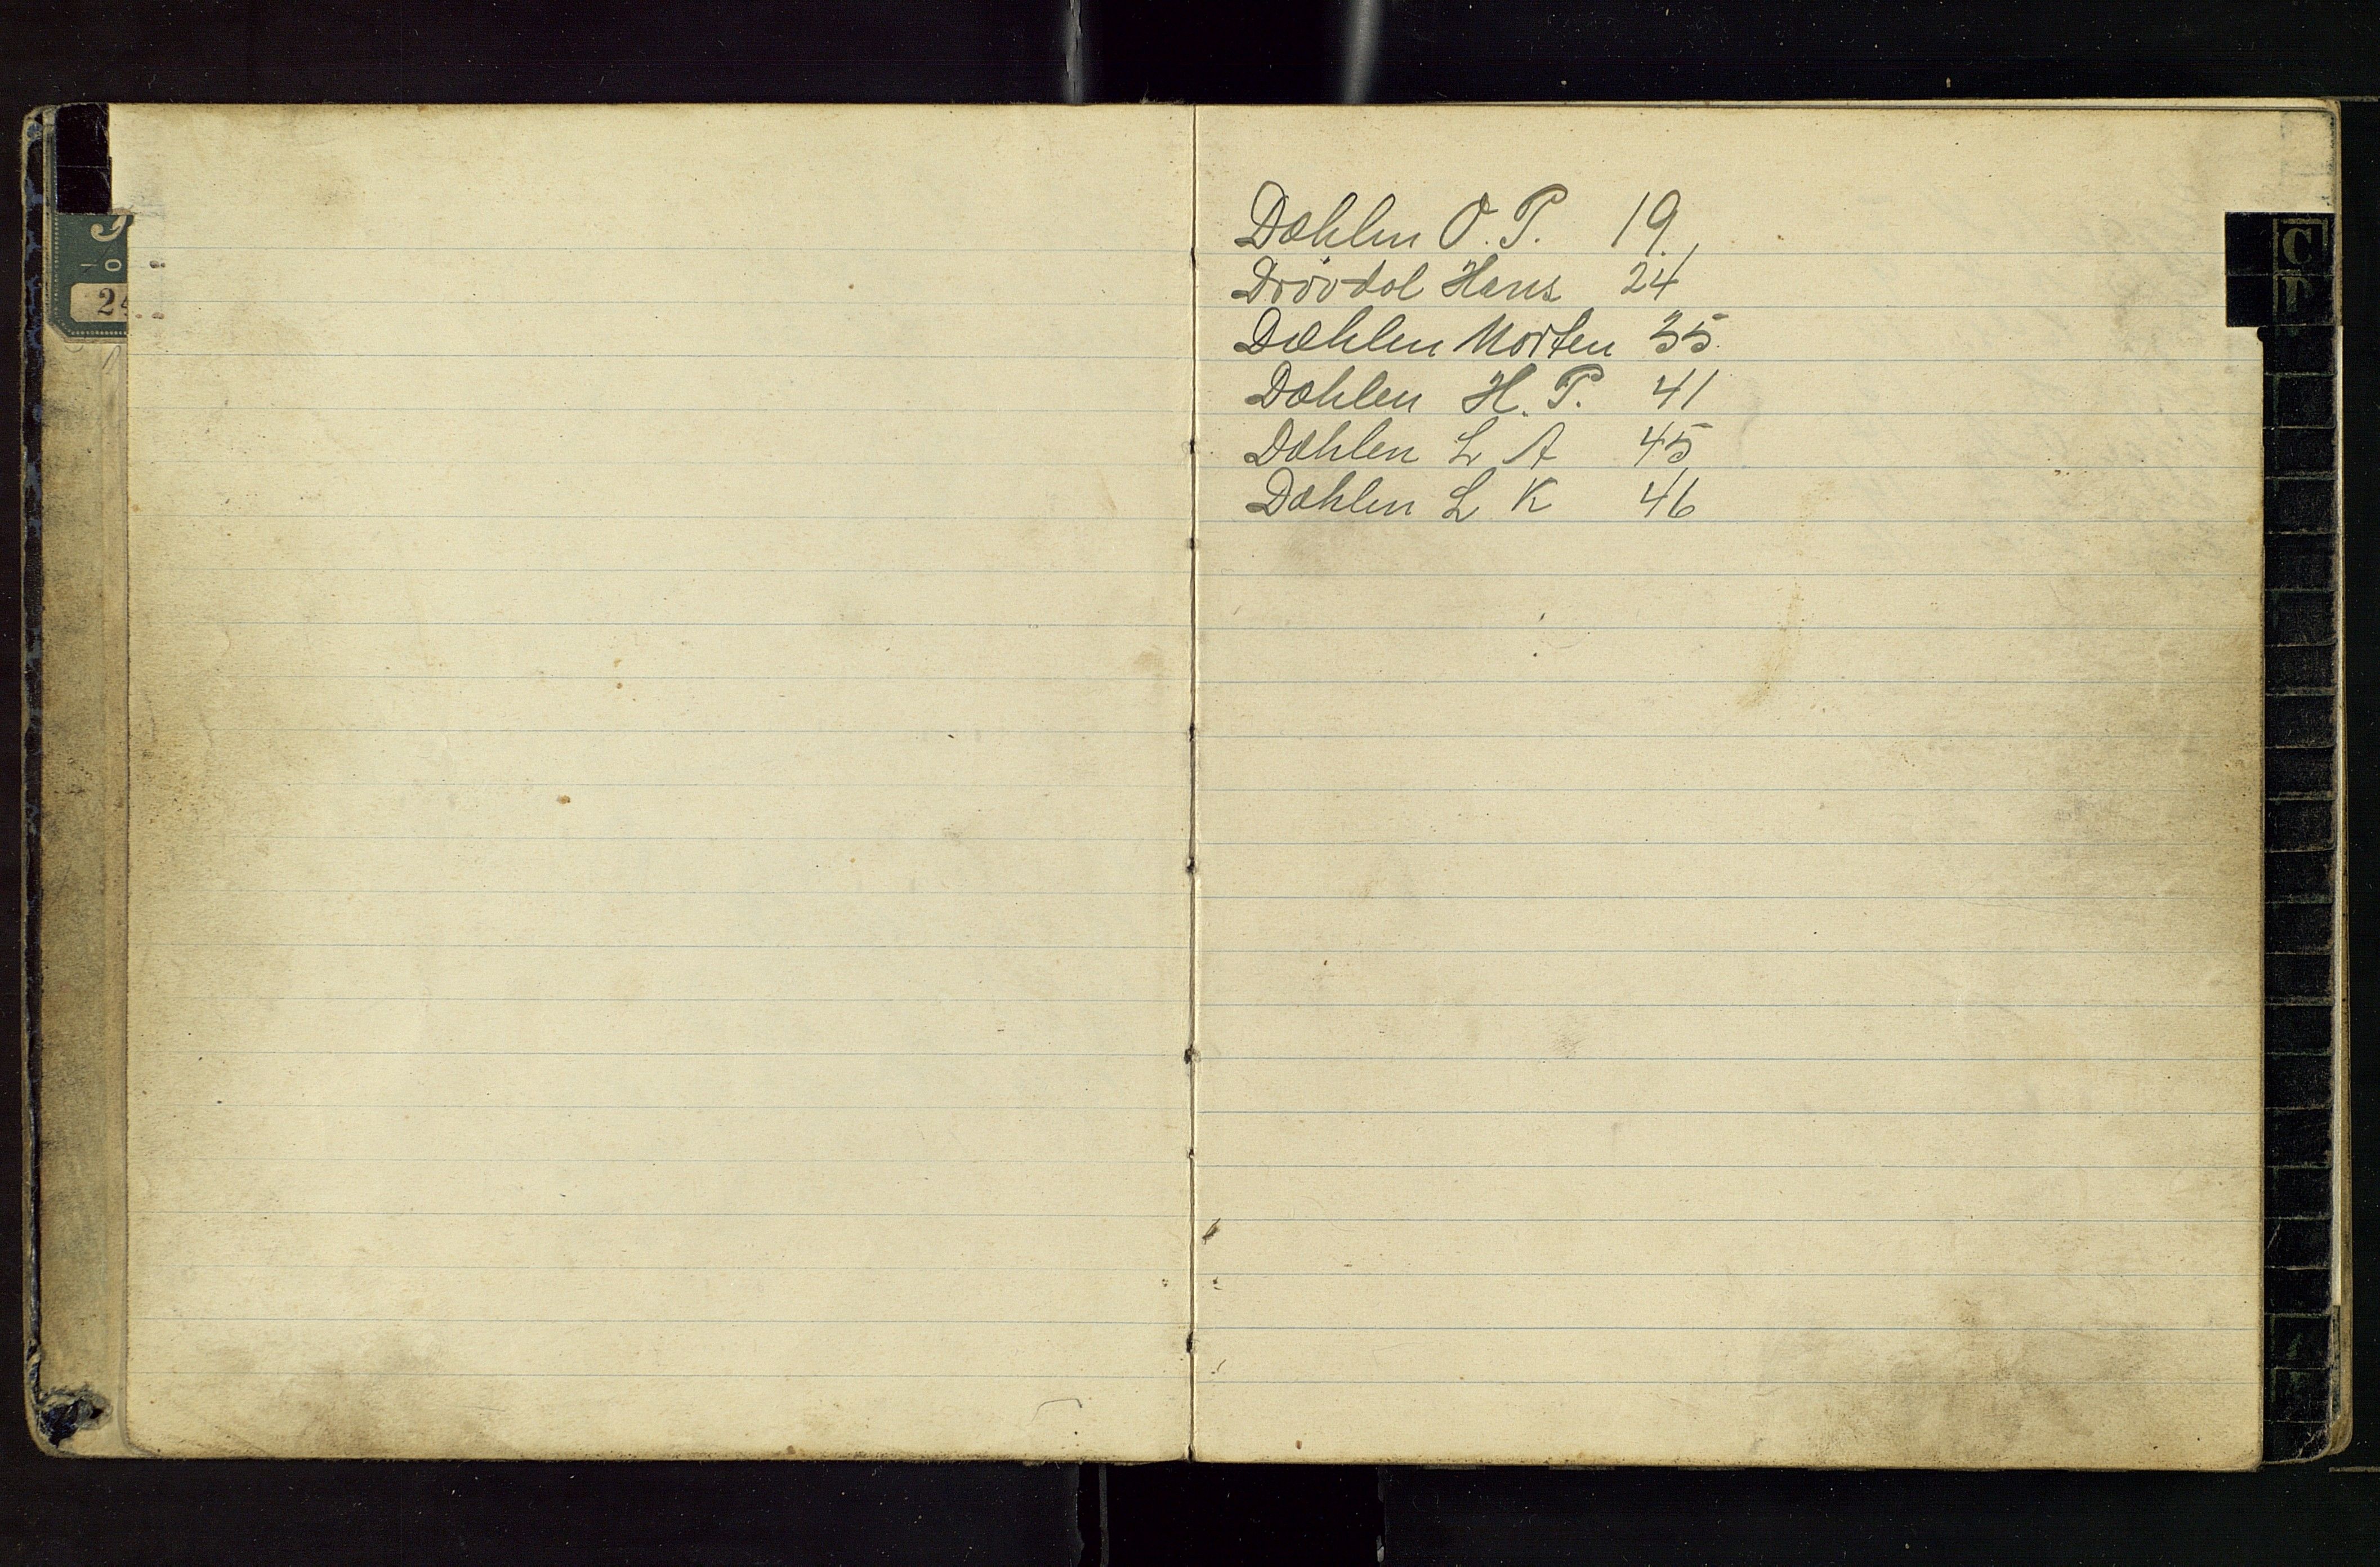 24
C
D
Dæhlen O. P. 19
Drövdal Hans 24
Dæhlen Morten 35
Dæhlen H. P. 41
Dæhlen L A 45
Dæhlen L K 46